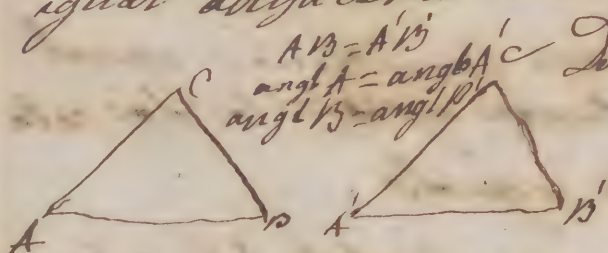 igual
AB = A'B'
angl A = angl A'
angl B = angl B'
C
C'
A
B
A'
B'